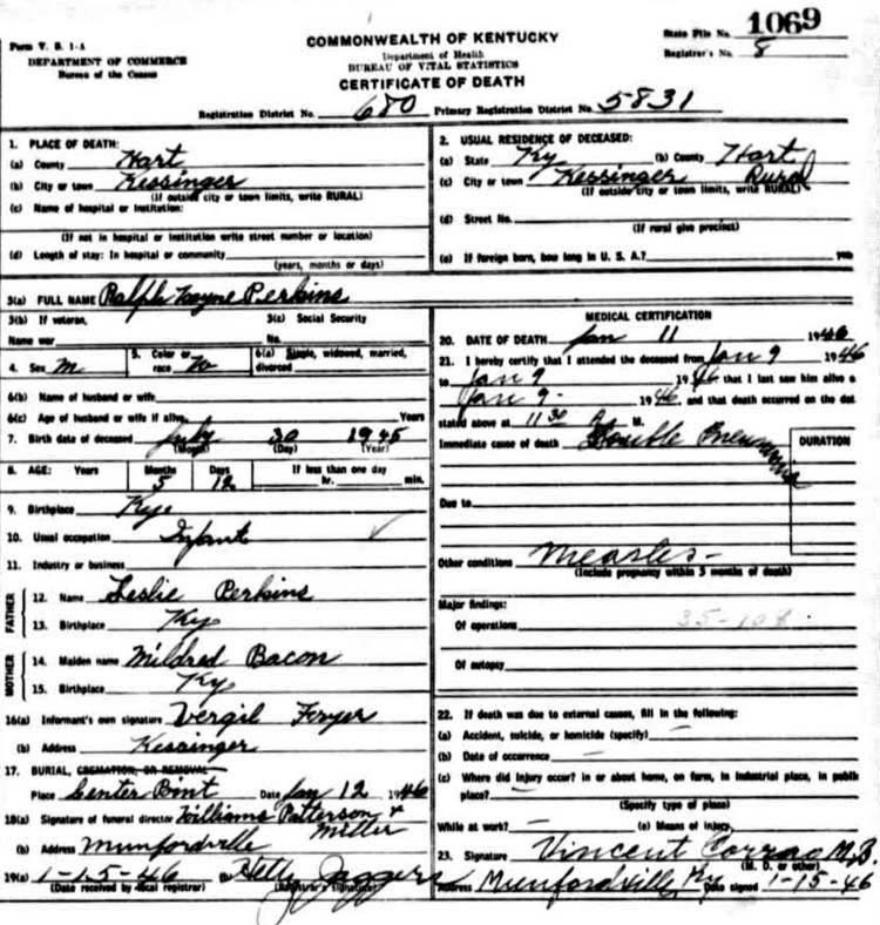 Form V. S. 1-A
DEPARTMENT OF COMMERCE
Bureau of the Census
COMMONWEALTH OF KENTUCKY
Department of Health
BUREAU OF VITAL STATISTICS
CERTIFICATE OF DEATH
State File No. 1069
Registrar's No. 8
Registration District No. 680 Primary Registration District No. 5831
1. PLACE OF DEATH:
(a) County Hart
(b) City or town Kessinger
(If outside city or town limits, write RURAL)
(c) Name of hospital or institution:
(If not in hospital or institution write street number or location)
(d) Length of stay: In hospital or community
(years, months or days)
2. USUAL RESIDENCE OF DECEASED:
(a) State Ky (b) County Hart
(c) City or town Kessinger Rural
(If outside city or town limits, write RURAL)
(d) Street No.
(If rural give precinct)
(e) If foreign born, how long in U. S. A.? yrs
3(a) FULL NAME Ralph Wayne Perkins
3(b) If veteran, 3(c) Social Security
Name war No.
4. Sex M 5. Color or race W 6(a) Single, widowed, married, divorced
6(b) Name of husband or wife
6(c) Age of husband or wife if alive Years
7. Birth date of deceased July 30 1945
(Month) (Day) (Year)
8. AGE: Years Months Days If less than one day
5 12 hr. min.
9. Birthplace Ky
10. Usual occupation Infant
11. Industry or business
FATHER
12. Name Leslie Perkins
13. Birthplace Ky
MOTHER
14. Maiden name Mildred Bacon
15. Birthplace Ky
16(a) Informant's own signature Vergil Fryer
(b) Address Kessinger
17. BURIAL, CREMATION, OR REMOVAL
Place Center Point Date Jan 12 1946
18(a) Signature of funeral director Williams Patterson &
Miller
(b) Address Munfordville
19(a) 1-15-46 Hetty Jaggers
(Date received by local registrar) (Registrar's signature)
MEDICAL CERTIFICATION
20. DATE OF DEATH Jan 11 1946
21. I hereby certify that I attended the deceased from Jan 9 1946
to Jan 9 1946 that I last saw him alive o
Jan 9 - 1946, and that death occurred on the dat
stated above at 11 30 A. M.
Immediate cause of death Double Pneumonia
DURATION
Due to
Other conditions Measles -
(Include pregnancy within 3 months of death)
Major findings:
Of operations 35-108
Of autopsy
22. If death was due to external causes, fill in the following:
(a) Accident, suicide, or homicide (specify) —
(b) Date of occurrence —
(c) Where did injury occur? in or about home, on farm, in industrial place, in public
place? —
(Specify type of place)
While at work? — (e) Means of injury
23. Signature Vincent Corrao M.D.
(M. D. or other)
Address Munfordville, Ky Date signed 1-15-46